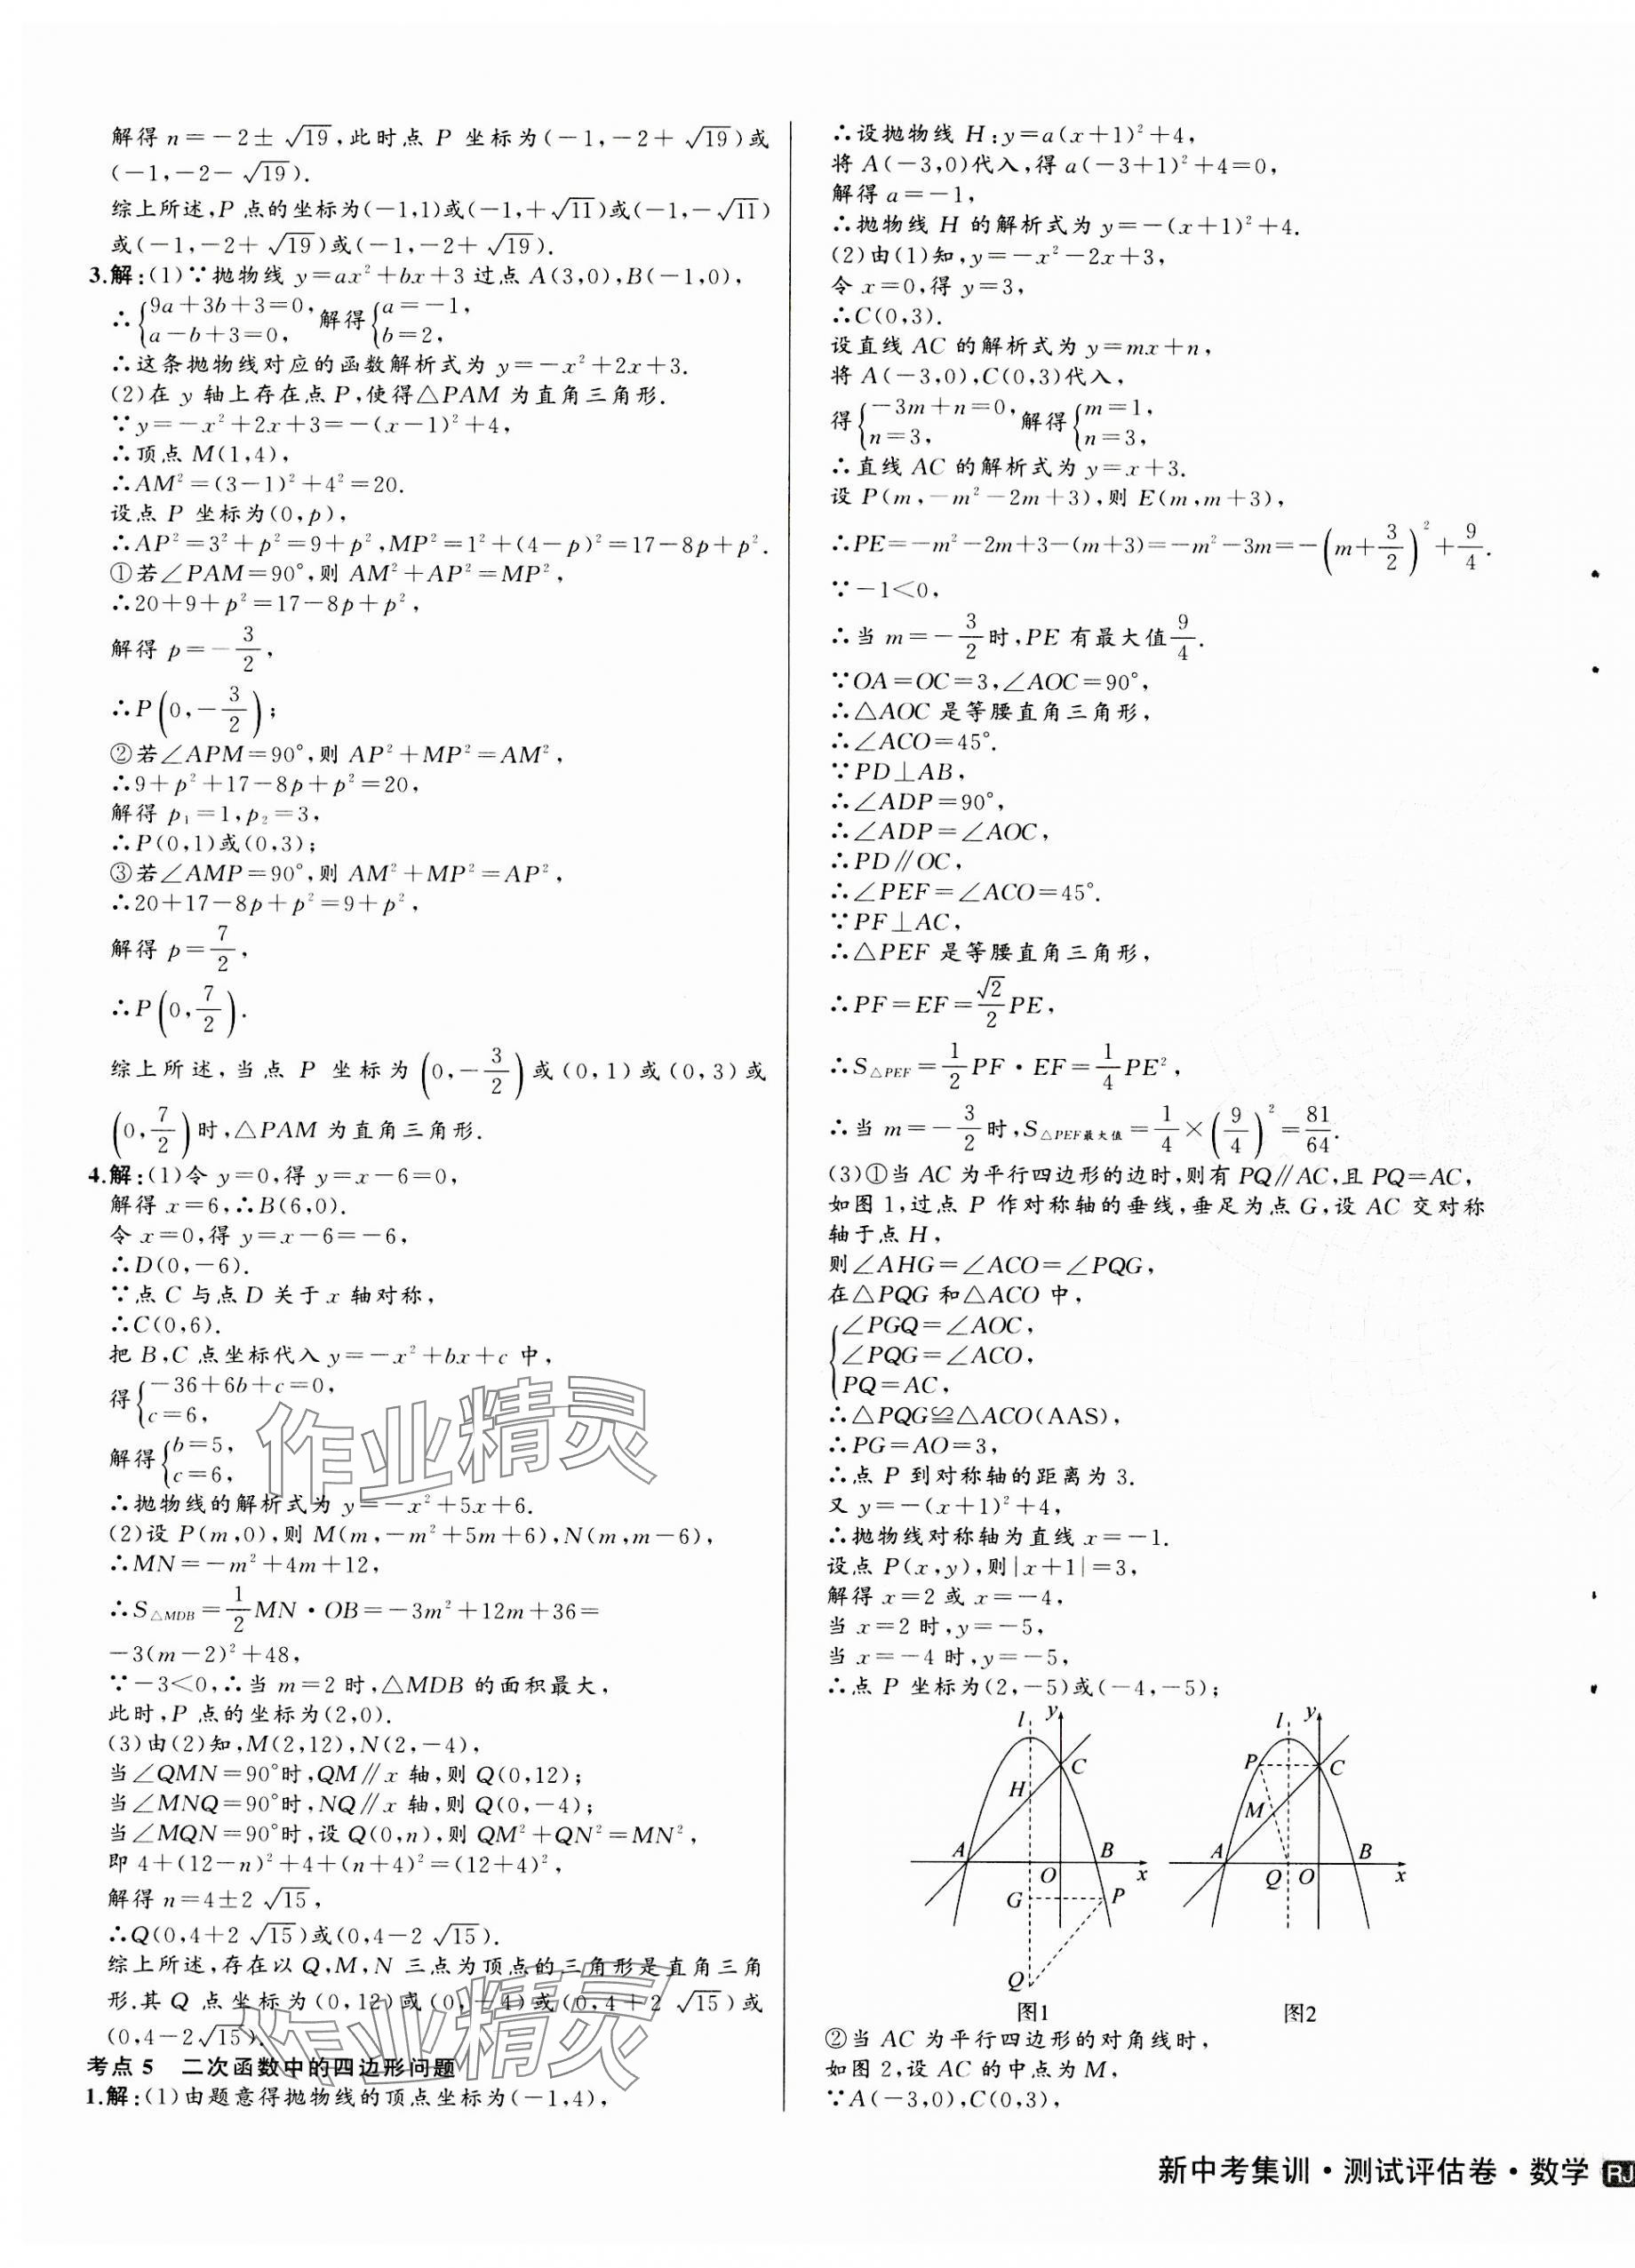 解得 n=-2±√19,此时点 P 坐标为(-1,-2+√19)或
(-1,-2-√19).
综上所述,P 点的坐标为(-1,1)或(-1,+√11)或(-1,-√11)
或(-1,-2+√19)或(-1,-2+√19).
3.解:(1)∵抛物线 y=ax²+bx+3 过点 A(3,0),B(-1,0),
∴{9a+3b+3=0, a-b+3=0, 解得{a=-1, b=2,
∴这条抛物线对应的函数解析式为 y=-x²+2x+3.
(2)在 y 轴上存在点 P,使得△PAM 为直角三角形.
∵y=-x²+2x+3=-(x-1)²+4,
∴顶点 M(1,4),
∴AM²=(3-1)²+4²=20.
设点 P 坐标为(0,p),
∴AP²=3²+p²=9+p²,MP²=1²+(4-p)²=17-8p+p².
①若∠PAM=90°,则 AM²+AP²=MP²,
∴20+9+p²=17-8p+p²,
解得 p=-3/2,
∴P(0,-3/2);
②若∠APM=90°,则 AP²+MP²=AM²,
∴9+p²+17-8p+p²=20,
解得 p₁=1,p₂=3,
∴P(0,1)或(0,3);
③若∠AMP=90°,则 AM²+MP²=AP²,
∴20+17-8p+p²=9+p²,
解得 p=7/2,
∴P(0,7/2).
综上所述,当点 P 坐标为(0,-3/2)或(0,1)或(0,3)或
(0,7/2)时,△PAM 为直角三角形.
4.解:(1)令 y=0,得 y=x-6=0,
解得 x=6,∴B(6,0).
令 x=0,得 y=x-6=-6,
∴D(0,-6).
∵点 C 与点 D 关于 x 轴对称,
∴C(0,6).
把 B,C 点坐标代入 y=-x²+bx+c 中,
得{-36+6b+c=0, c=6,
解得{b=5, c=6,
∴抛物线的解析式为 y=-x²+5x+6.
(2)设 P(m,0),则 M(m,-m²+5m+6),N(m,m-6),
∴MN=-m²+4m+12,
∴S△MDB=1/2MN·OB=-3m²+12m+36=
-3(m-2)²+48,
∵-3<0,∴当 m=2 时,△MDB 的面积最大,
此时,P 点的坐标为(2,0).
(3)由(2)知,M(2,12),N(2,-4),
当∠QMN=90°时,QM∥x 轴,则 Q(0,12);
当∠MNQ=90°时,NQ∥x 轴,则 Q(0,-4);
当∠MQN=90°时,设 Q(0,n),则 QM²+QN²=MN²,
即 4+(12-n)²+4+(n+4)²=(12+4)²,
解得 n=4±2√15,
∴Q(0,4+2√15)或(0,4-2√15).
综上所述,存在以 Q,M,N 三点为顶点的三角形是直角三角
形.其 Q 点坐标为(0,12)或(0,-4)或(0,4+2√15)或
(0,4-2√15).
考点 5 二次函数中的四边形问题
1.解:(1)由题意得抛物线的顶点坐标为(-1,4),
∴设抛物线 H:y=a(x+1)²+4,
将 A(-3,0)代入,得 a(-3+1)²+4=0,
解得 a=-1,
∴抛物线 H 的解析式为 y=-(x+1)²+4.
(2)由(1)知,y=-x²-2x+3,
令 x=0,得 y=3,
∴C(0,3).
设直线 AC 的解析式为 y=mx+n,
将 A(-3,0),C(0,3)代入,
得{-3m+n=0, n=3, 解得{m=1, n=3,
∴直线 AC 的解析式为 y=x+3.
设 P(m,-m²-2m+3),则 E(m,m+3),
∴PE=-m²-2m+3-(m+3)=-m²-3m=-(m+3/2)²+9/4.
∵-1<0,
∴当 m=-3/2时,PE 有最大值9/4.
∵OA=OC=3,∠AOC=90°,
∴△AOC 是等腰直角三角形,
∴∠ACO=45°.
∵PD⊥AB,
∴∠ADP=90°,
∴∠ADP=∠AOC,
∴PD∥OC,
∴∠PEF=∠ACO=45°.
∵PF⊥AC,
∴△PEF 是等腰直角三角形,
∴PF=EF=√2/2PE,
∴S△PEF=1/2PF·EF=1/4PE²,
∴当 m=-3/2时,S△PEF最大值=1/4×(9/4)²=81/64.
(3)①当 AC 为平行四边形的边时,则有 PQ∥AC,且 PQ=AC,
如图 1,过点 P 作对称轴的垂线,垂足为点 G,设 AC 交对称
轴于点 H,
则∠AHG=∠ACO=∠PQG,
在△PQG 和△ACO 中,
{∠PGQ=∠AOC,
∠PQG=∠ACO,
PQ=AC,
∴△PQG≌△ACO(AAS),
∴PG=AO=3,
∴点 P 到对称轴的距离为 3.
又 y=-(x+1)²+4,
∴抛物线对称轴为直线 x=-1.
设点 P(x,y),则|x+1|=3,
解得 x=2 或 x=-4,
当 x=2 时,y=-5,
当 x=-4 时,y=-5,
∴点 P 坐标为(2,-5)或(-4,-5);
l y C H A B O x G P Q
图1
l y P C M A B Q O x
图2
②当 AC 为平行四边形的对角线时,
如图 2,设 AC 的中点为 M,
∵A(-3,0),C(0,3),
新中考集训·测试评估卷·数学 RJ
作业精灵
作业精灵